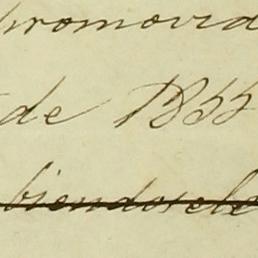 promovida
de 1855
biendosele